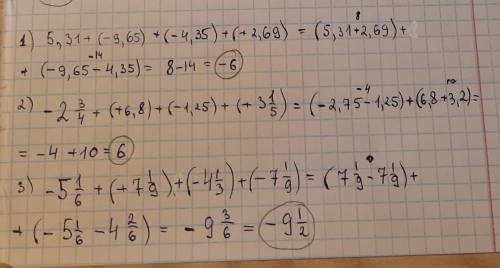 1) 5,31 + (-9,65) + (-4,35) + (+2,69) = (5,31 + 2,69) +
+ (-9,65 - 4,35) = 8 - 14 = -6
2) -2 3/4 + (+6,8) + (-1,25) + (+3 1/5) = (-2,75 - 1,25) + (6,8 + 3,2) =
= -4 + 10 = 6
3) -5 1/6 + (+7 1/9) + (-4 1/3) + (-7 1/9) = (7 1/9 - 7 1/9) +
+ (-5 1/6 - 4 2/6) = -9 3/6 = -9 1/2